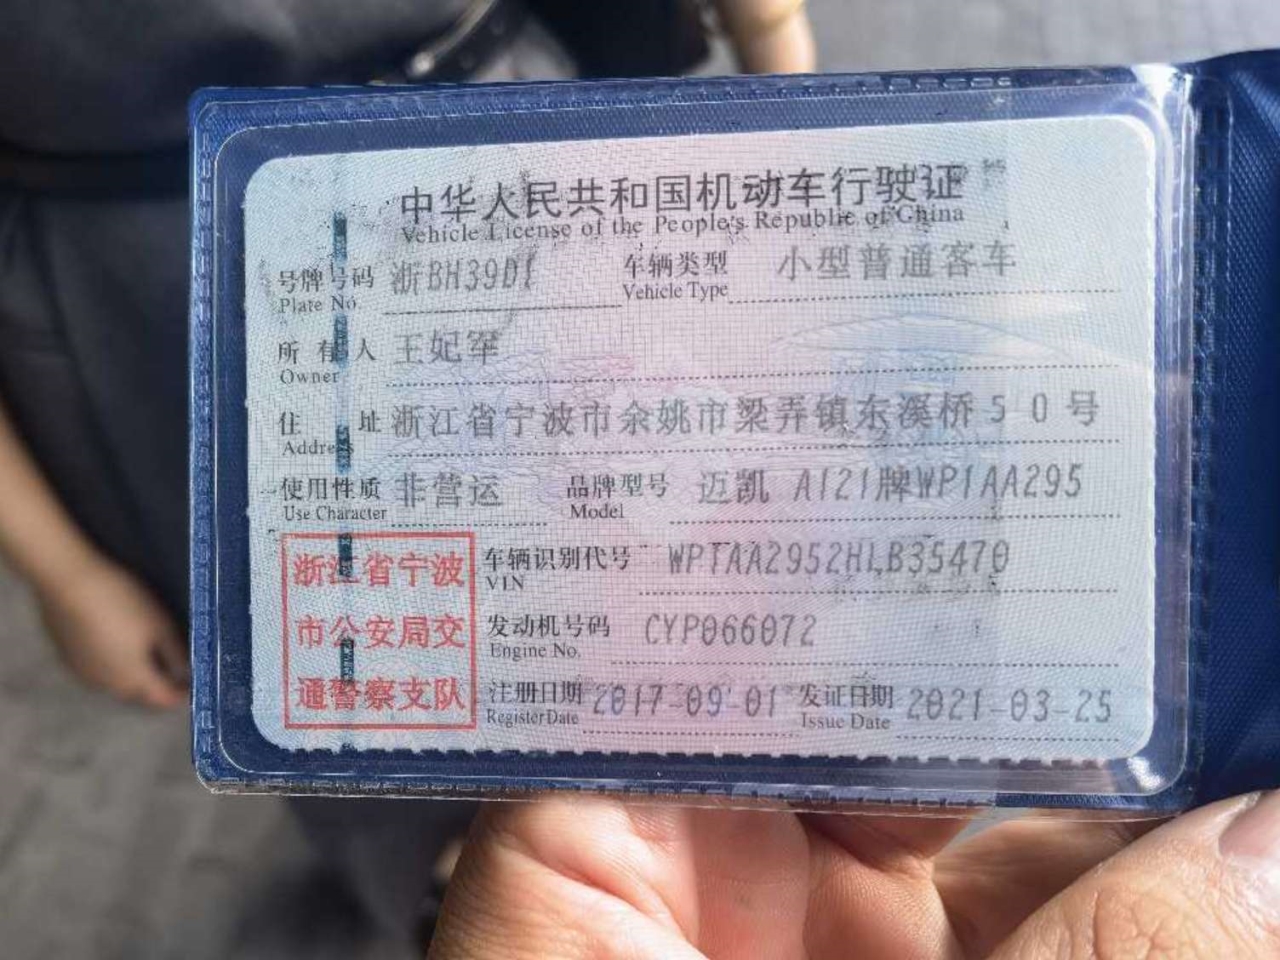 中华人民共和国机动车行驶证
Vehicle License of the People's Republic of China
号牌号码 浙BH39D1 车辆类型 小型普通客车
Plate No. Vehicle Type
所有人 王妃军
Owner
住址 浙江省宁波市余姚市梁弄镇东溪桥50号
Address
使用性质 非营运 品牌型号 迈凯 A121牌WP1AA295
Use Character Model
浙江省宁波
市公安局交
通警察支队
车辆识别代号 WP1AA2952HLB35470
VIN
发动机号码 CYP066072
Engine No.
注册日期 2017-09-01 发证日期 2021-03-25
Register Date Issue Date